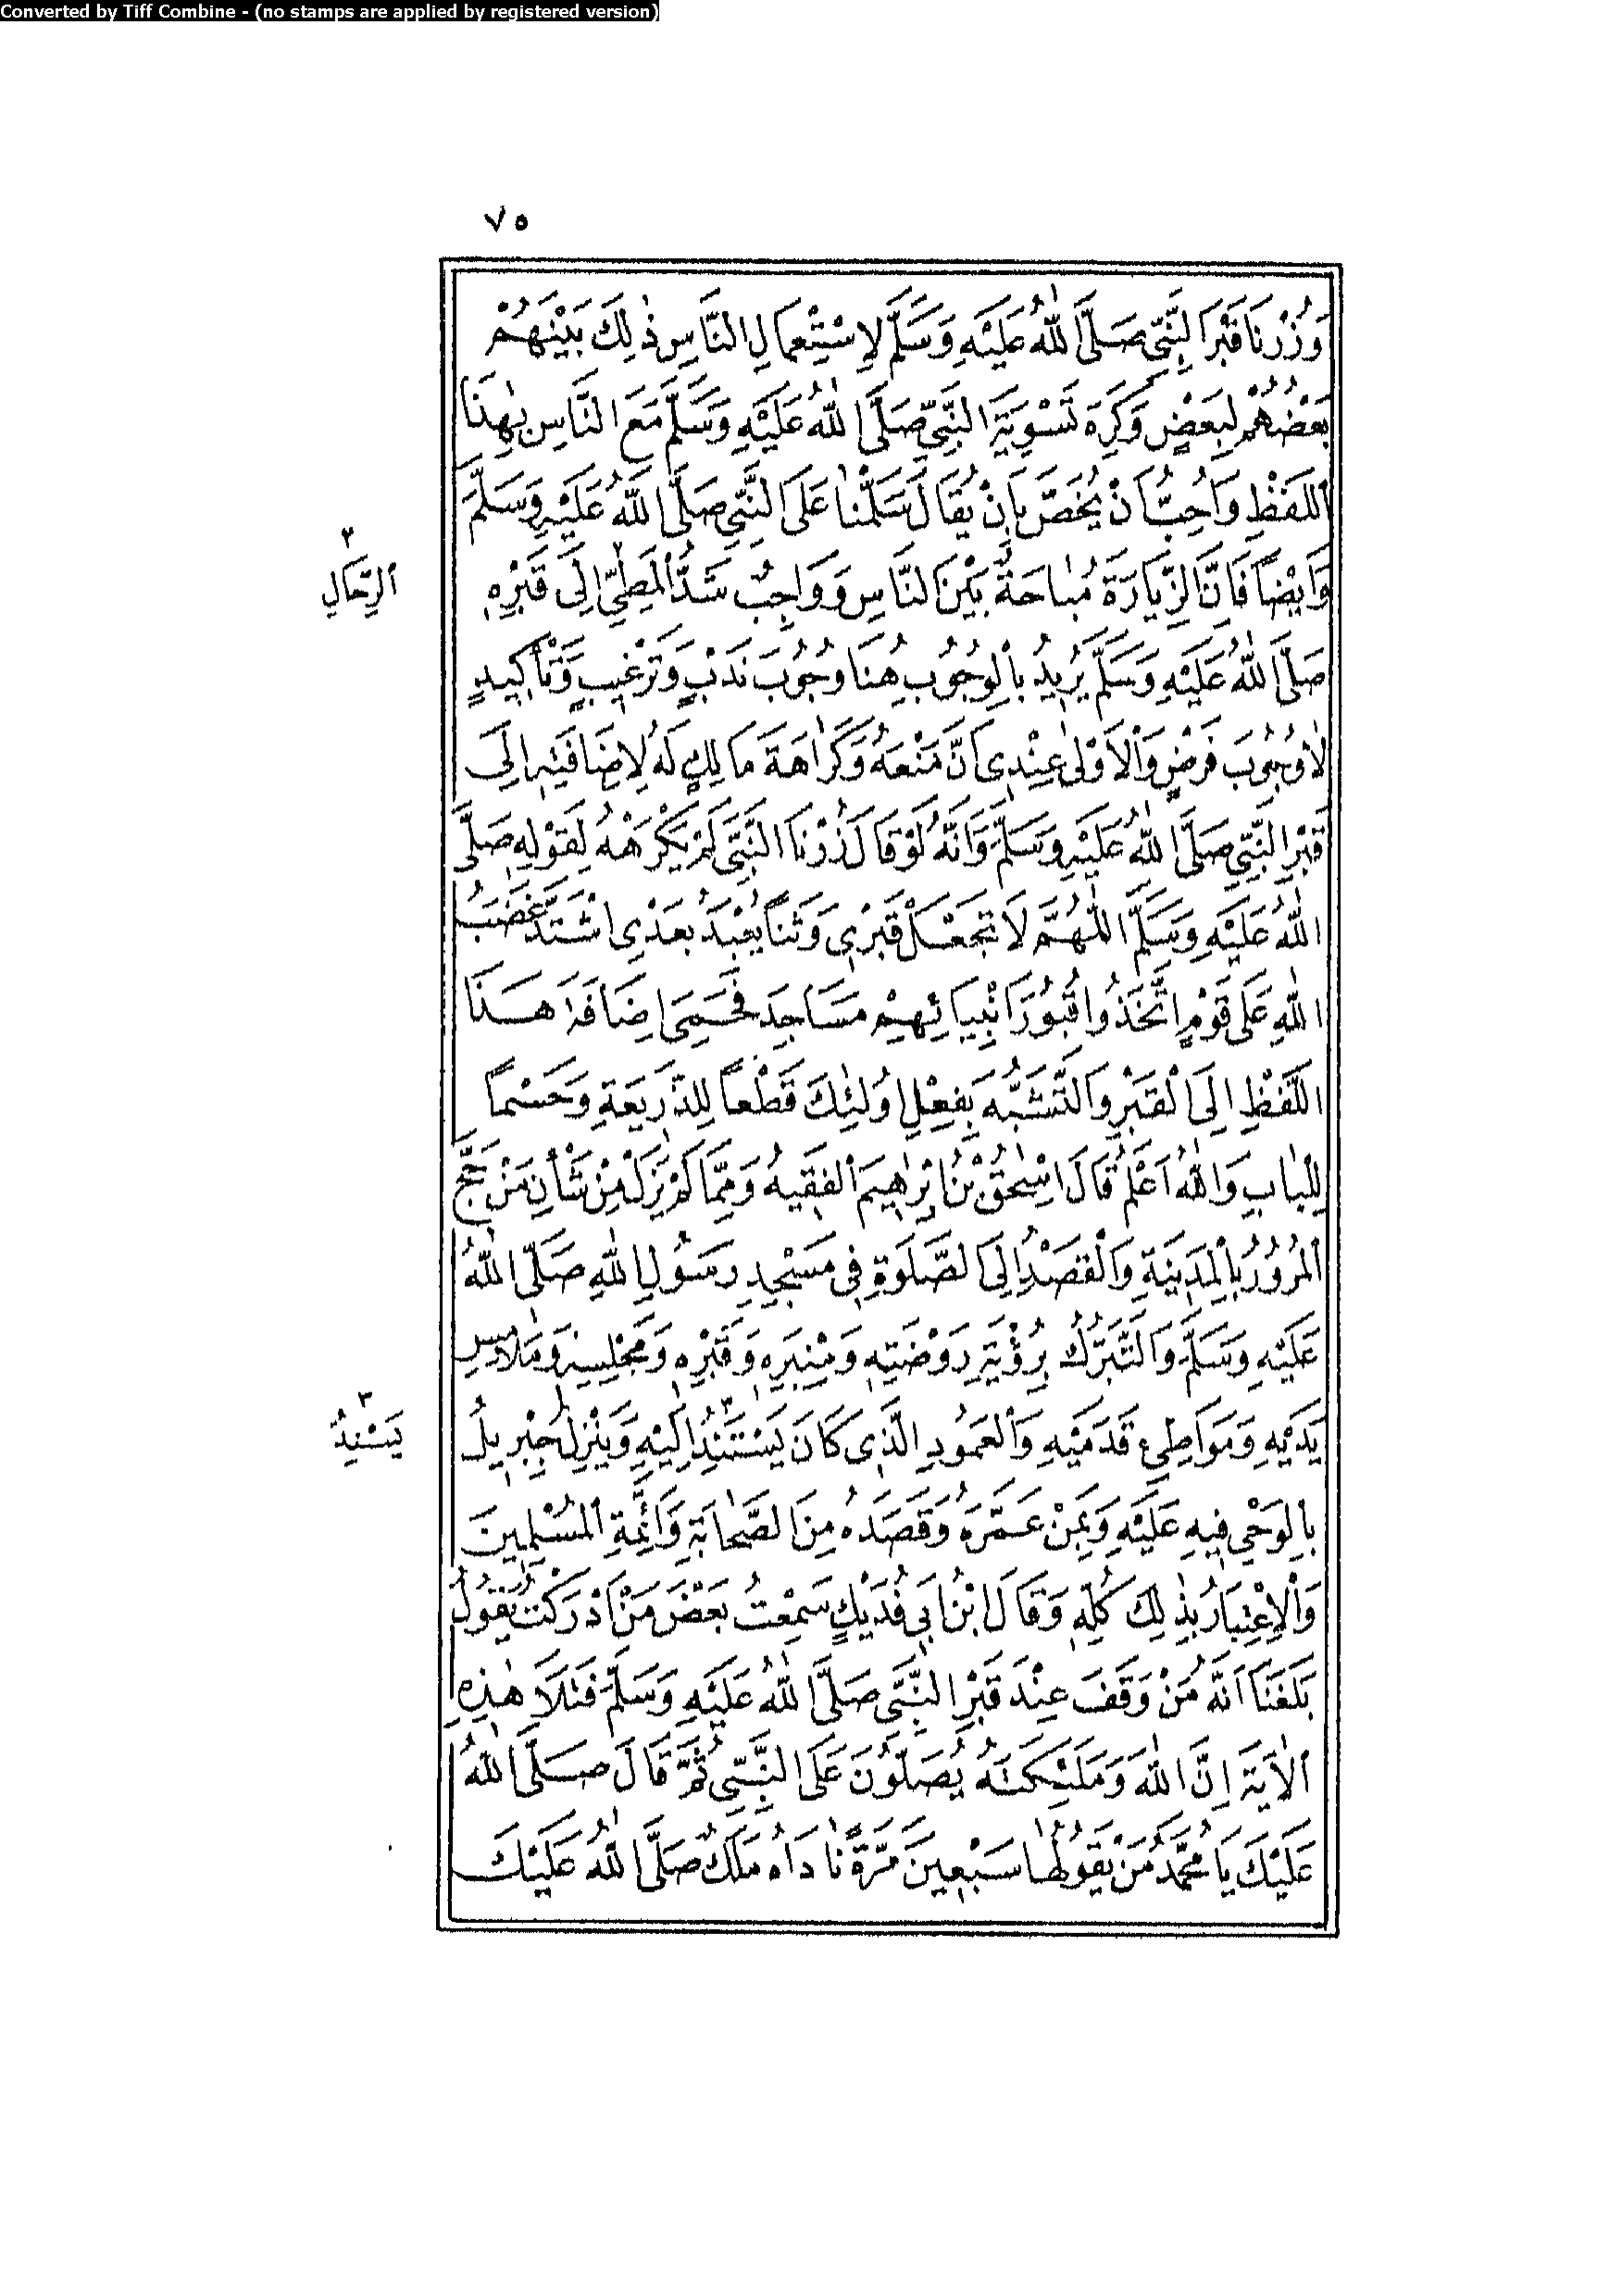 Converted by Tiff Combine - (no stamps are applied by registered version)
٧٥
وَزُرْنَا قَبْرَ النَّبِيِّ صَلَّى اللّٰهُ عَلَيْهِ وَسَلَّمَ لِاِسْتِعْمَالِ النَّاسِ ذٰلِكَ بَيْنَهُمْ
بَعْضُهُمْ لِبَعْضٍ وَكَرِهَ تَسْوِيَةَ النَّبِيِّ صَلَّى اللّٰهُ عَلَيْهِ وَسَلَّمَ مَعَ النَّاسِ بِهٰذَا
اللَّفْظِ وَاَحَبَّ اَنْ يُخَصَّ بِاَنْ يُقَالَ سَلَّمْنَا عَلَى النَّبِيِّ صَلَّى اللّٰهُ عَلَيْهِ وَسَلَّمَ
وَاَيْضًا فَاِنَّ الزِّيَارَةَ مُبَاحَةٌ بَيْنَ النَّاسِ وَوَاجِبٌ شَدُّ الْمَطِيِّ اِلَى قَبْرِهِ
٣
الرِّحَالِ
صَلَّى اللّٰهُ عَلَيْهِ وَسَلَّمَ يُرِيدُ بِالْوُجُوبِ هُنَا وُجُوبَ نَدْبٍ وَتَرْغِيبٍ وَتَأْكِيدٍ
لَا وُجُوبَ فَرْضٍ وَالْاَوْلٰى عِنْدِى اَنَّ مَنْعَهُ وَكَرَاهَةَ مَالِكٍ لَهُ لِاِضَافَتِهِ اِلَى
قَبْرِ النَّبِيِّ صَلَّى اللّٰهُ عَلَيْهِ وَسَلَّمَ وَاَنَّهُ لَوْ قَالَ زُرْنَا النَّبِيَّ لَمْ يَكْرَهْهُ لِقَوْلِهِ صَلَّى
اللّٰهُ عَلَيْهِ وَسَلَّمَ اَللّٰهُمَّ لَا تَجْعَلْ قَبْرِى وَثَنًا يُعْبَدُ بَعْدِى اشْتَدَّ غَضَبُ
اللّٰهِ عَلَى قَوْمٍ اتَّخَذُوا قُبُورَ اَنْبِيَائِهِمْ مَسَاجِدَ فَحَمَى اِضَافَةَ هٰذَا
اللَّفْظِ اِلَى الْقَبْرِ وَالتَّشَبُّهَ بِفِعْلِ اُولٰئِكَ قَطْعًا لِلذَّرِيعَةِ وَحَسْمًا
لِلْبَابِ وَاللّٰهُ اَعْلَمُ قَالَ اِسْحٰقُ بْنُ اِبْرَاهِيمَ الْفَقِيهُ وَمِمَّا لَمْ يَزَلْ مِنْ شَأْنِ مَنْ حَجَّ
الْمُرُورُ بِالْمَدِينَةِ وَالْقَصْدُ اِلَى الصَّلٰوةِ فِى مَسْجِدِ رَسُولِ اللّٰهِ صَلَّى اللّٰهُ
عَلَيْهِ وَسَلَّمَ وَالتَّبَرُّكُ بِرُؤْيَةِ رَوْضَتِهِ وَمِنْبَرِهِ وَقَبْرِهِ وَمَجْلِسِهِ وَمَلَامِسِ
يَدَيْهِ وَمَوَاطِئِ قَدَمَيْهِ وَالْعَمُودِ الَّذِى كَانَ يَسْتَنِدُ اِلَيْهِ وَيَنْزِلُ جِبْرِيلُ
٣
يَسْنِدُ
بِالْوَحْيِ فِيهِ عَلَيْهِ وَبِمَنْ عَمَّرَهُ وَقَصَدَهُ مِنَ الصَّحَابَةِ وَاَئِمَّةِ الْمُسْلِمِينَ
وَالْاِعْتِبَارُ بِذٰلِكَ كُلِّهِ وَقَالَ ابْنُ اَبِى فُدَيْكٍ سَمِعْتُ بَعْضَ مَنْ اَدْرَكْتُ يَقُولُ
بَلَغَنَا اَنَّهُ مَنْ وَقَفَ عِنْدَ قَبْرِ النَّبِيِّ صَلَّى اللّٰهُ عَلَيْهِ وَسَلَّمَ فَتَلَا هٰذِهِ
الْاٰيَةَ اِنَّ اللّٰهَ وَمَلٰئِكَتَهُ يُصَلُّونَ عَلَى النَّبِيِّ ثُمَّ قَالَ صَلَّى اللّٰهُ
عَلَيْكَ يَا مُحَمَّدُ مَنْ يَقُولُهَا سَبْعِينَ مَرَّةً نَادَاهُ مَلَكٌ صَلَّى اللّٰهُ عَلَيْكَ